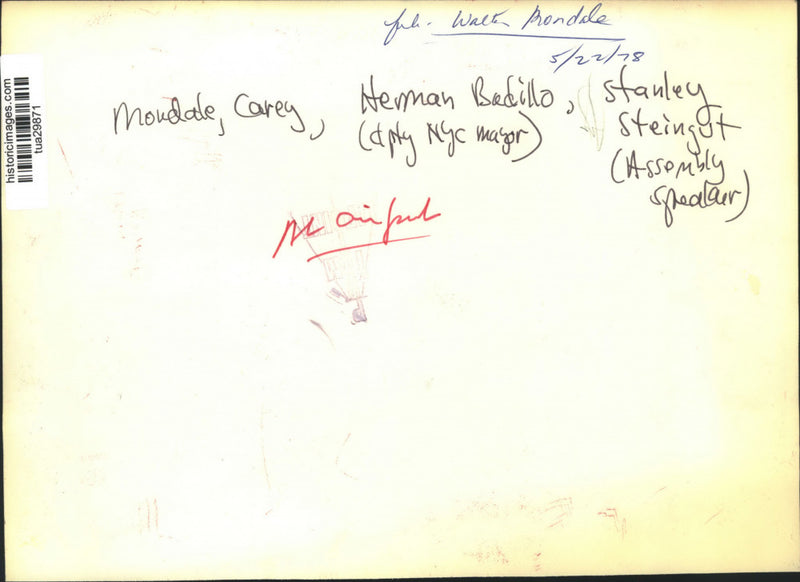 Walter Mondale
5/22/78
Mondale, Carey, Herman Badillo, Stanley
(dpty NYC mayor) Steingut
(Assembly
speaker)
historicimages.com
tua29871